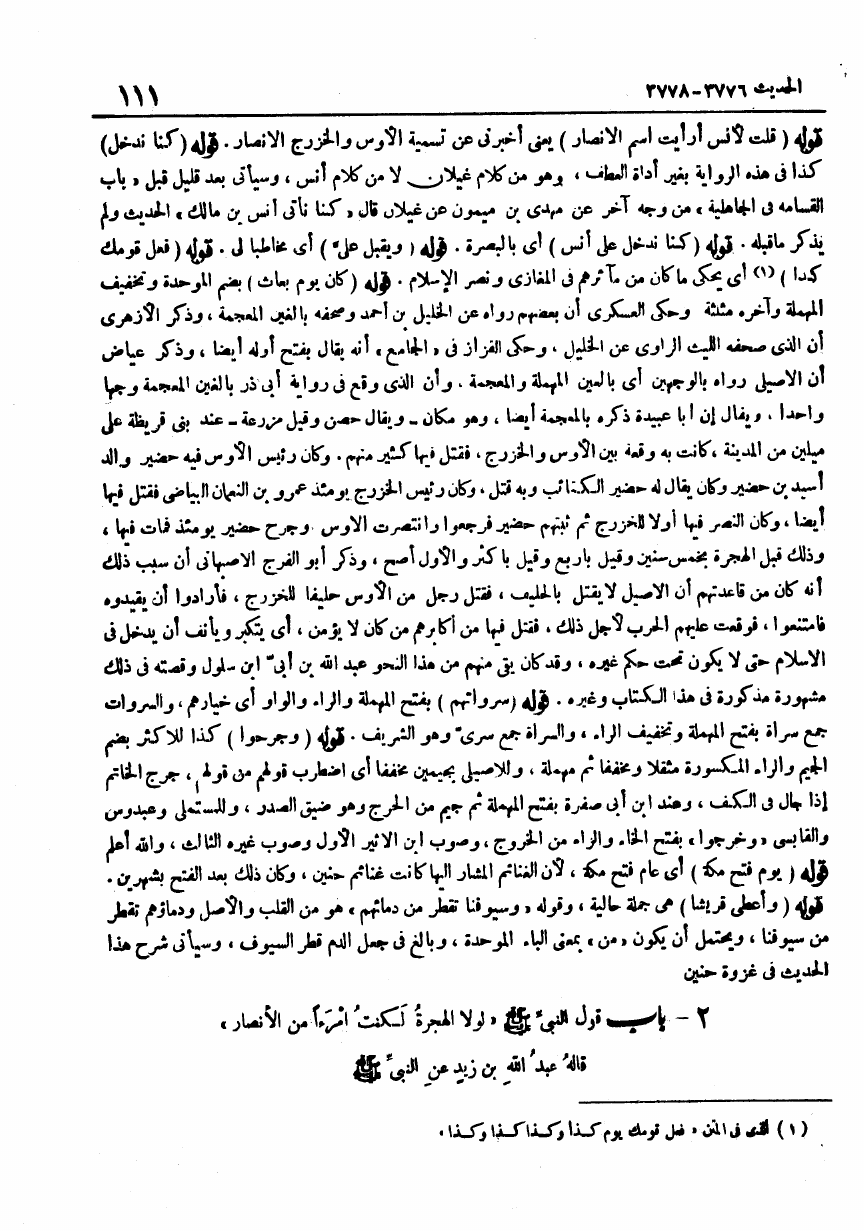 الحديث ٣٧٧٦-٣٧٧٨
١١١
قوله ( قلت لأنس أرأيت اسم الانصار ) يعنى أخبرنى عن تسمية الأوس والخزرج الانصار . قوله (كنا ندخل)
كذا فى هذه الرواية بغير أداة العطف ، وهو من كلام غيلان لا من كلام أنس ، وسيأتى بعد قليل قبل « باب
القسامه فى الجاهلية » من وجه آخر عن مهدى بن ميمون عن غيلان قال « كنا نأتى أنس بن مالك » الحديث ولم
يذكر ماقبله . قوله (كنا ندخل على أنس ) أى بالبصرة . قوله ( ويقبل علىّ ) أى مخاطبا لى . قوله ( فعل قومك
كذا ) (١) أى يحكى ماكان من مآثرهم فى المغازى ونصر الإسلام . قوله (كان يوم بعاث ) بضم الموحدة وتخفيف
المهملة وآخره مثلثة وحكى العسكرى أن بعضهم رواه عن الخليل بن أحمد وصحفه بالغين المعجمة ، وذكر الأزهرى
أن الذى صحفه الليث الراوى عن الخليل ، وحكى القزاز فى « الجامع » أنه يقال بفتح أوله أيضا ، وذكر عياض
أن الاصيلى رواه بالوجهين أى بالعين المهملة والمعجمة ، وأن الذى وقع فى رواية أبى ذر بالغين المعجمة وجها
واحدا . ويقال إن أبا عبيدة ذكره بالمعجمة أيضا ، وهو مكان - ويقال حصن وقيل مزرعة - عند بنى قريظة على
ميلين من المدينة ، كانت به وقعة بين الأوس والخزرج ، فقتل فيها كثير منهم . وكان رئيس الأوس فيه حضير والد
أسيد بن حضير وكان يقال له حضير الكتائب وبه قتل ، وكان رئيس الخزرج يومئذ عمرو بن النعمان البياضى فقتل فيها
أيضا ، وكان النصر فيها أولا للخزرج ثم ثبتهم حضير فرجعوا وانتصرت الاوس وجرح حضير يومئذ فمات فيها ،
وذلك قبل الهجرة بخمس سنين وقيل باربع وقيل باكثر والأول أصح ، وذكر أبو الفرج الاصبهانى أن سبب ذلك
أنه كان من قاعدتهم أن الاصيل لا يقتل بالحليف ، فقتل رجل من الأوس حليفا للخزرج ، فأرادوا أن يقيدوه
فامتنعوا ، فوقعت عليهم الحرب لأجل ذلك ، فقتل فيها من أكابرهم من كان لا يؤمن ، أى يتكبر ويأنف أن يدخل فى
الاسلام حتى لا يكون تحت حكم غيره ، وقد كان بقى منهم من هذا النحو عبد الله بن أبىّ ابن سلول وقصته فى ذلك
مشهورة مذكورة فى هذا الكتاب وغيره . قوله (سرواتهم ) بفتح المهملة والراء والواو أى خيارهم ، والسروات
جمع سراة بفتح المهملة وتخفيف الراء ، والسراة جمع سرىّ وهو الشريف . قوله ( وجرحوا ) كذا للاكثر بضم
الجيم والراء المكسورة مثقلا ومخففا ثم مهملة ، وللاصيلى بجيمين مخففا أى اضطرب قولهم من قولهم ، جرج الخاتم
إذا جال فى الكف ، وعند ابن أبى صفرة بفتح المهملة ثم جيم من الحرج وهو ضيق الصدر ، وللمستملى وعبدوس
والقابسى « وخرجوا » بفتح الخاء والراء من الخروج ، وصوب ابن الاثير الأول وصوب غيره الثالث ، والله أعلم
قوله ( يوم فتح مكة ) أى عام فتح مكة ، لأن الغنائم المشار اليها كانت غنائم حنين ، وكان ذلك بعد الفتح بشهرين .
قوله ( وأعطى قريشا ) هى جملة حالية ، وقوله « وسيوفنا تقطر من دمائهم » هو من القلب والأصل ودماؤهم تقطر
من سيوفنا ، ويحتمل أن يكون « من » بمعنى الباء الموحدة ، وبالغ فى جعل الدم قطر السيوف ، وسيأتى شرح هذا
الحديث فى غزوة حنين
٢ - باب قول النبىّ ﷺ « لولا الهجرةُ لَكنتُ امْرَءاً من الأنصار »
قالهُ عبدُ اللهِ بن زيدٍ عنِ النبىِّ ﷺ
( ١ ) الذى فى المتن « فعل قومك يوم كذا وكذا كذا وكذا »